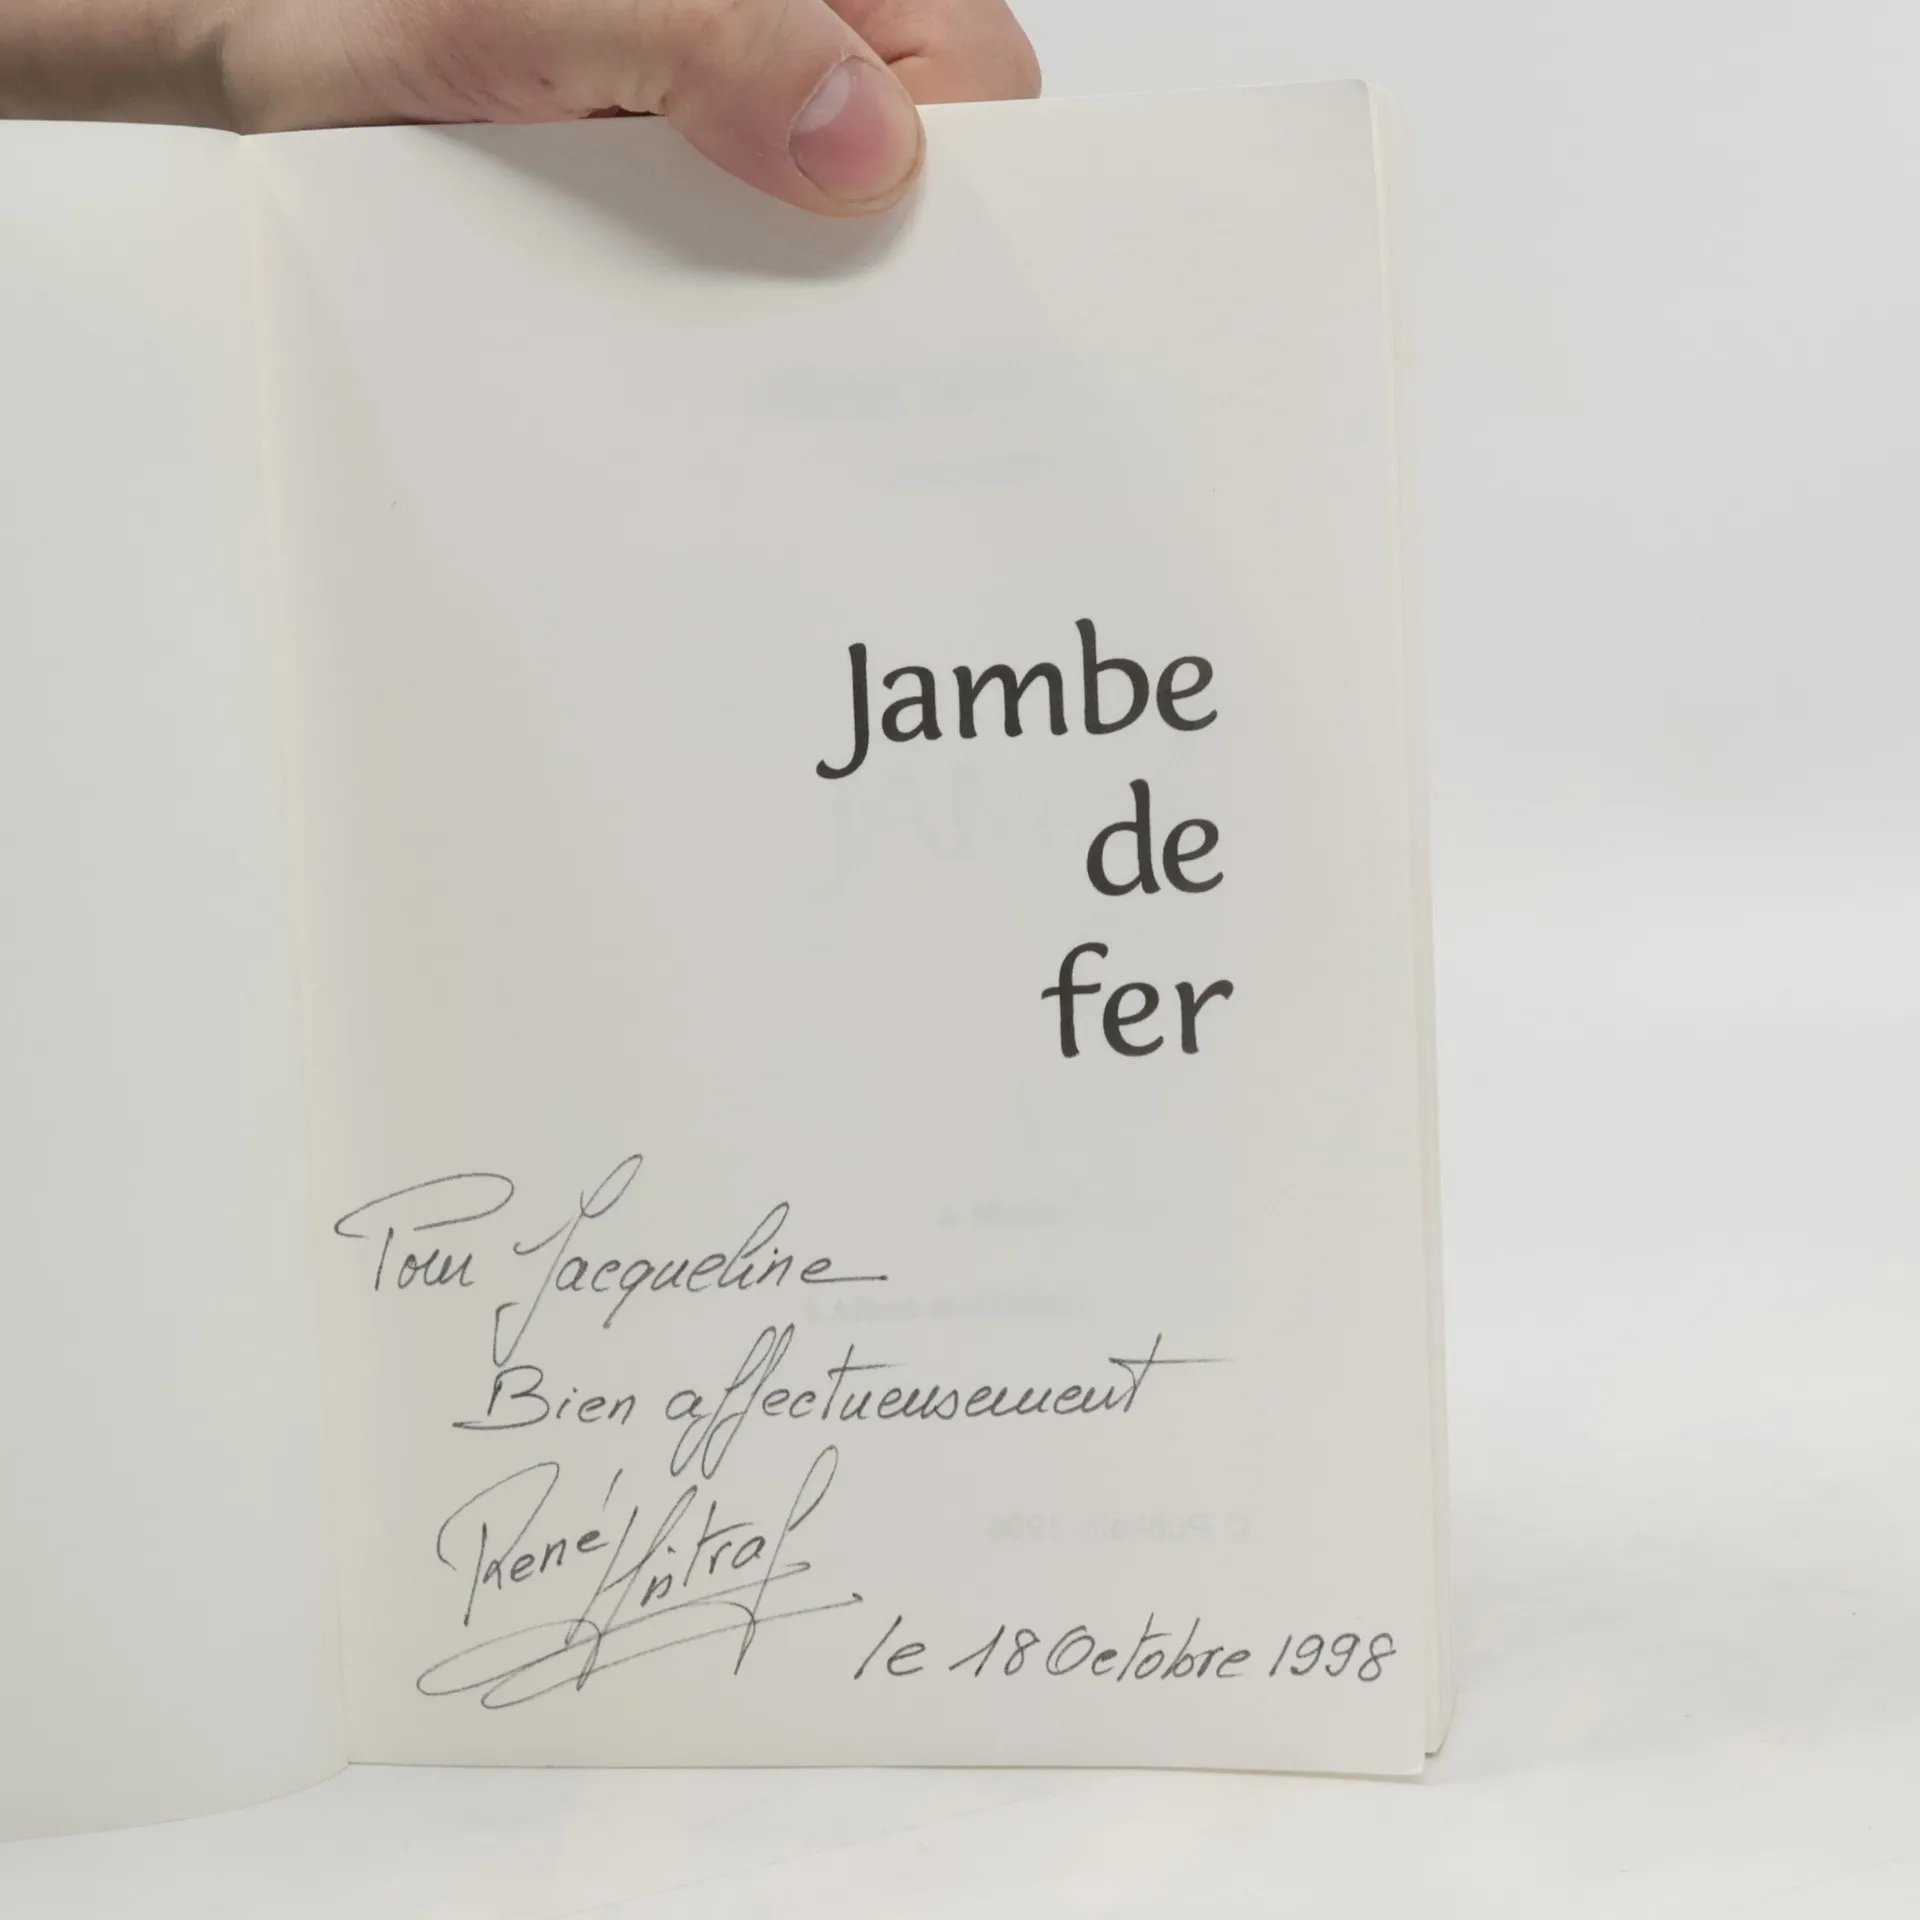 Jambe
de
fer
Pour Jacqueline
Bien affectueusement
René
le 18 Octobre 1998